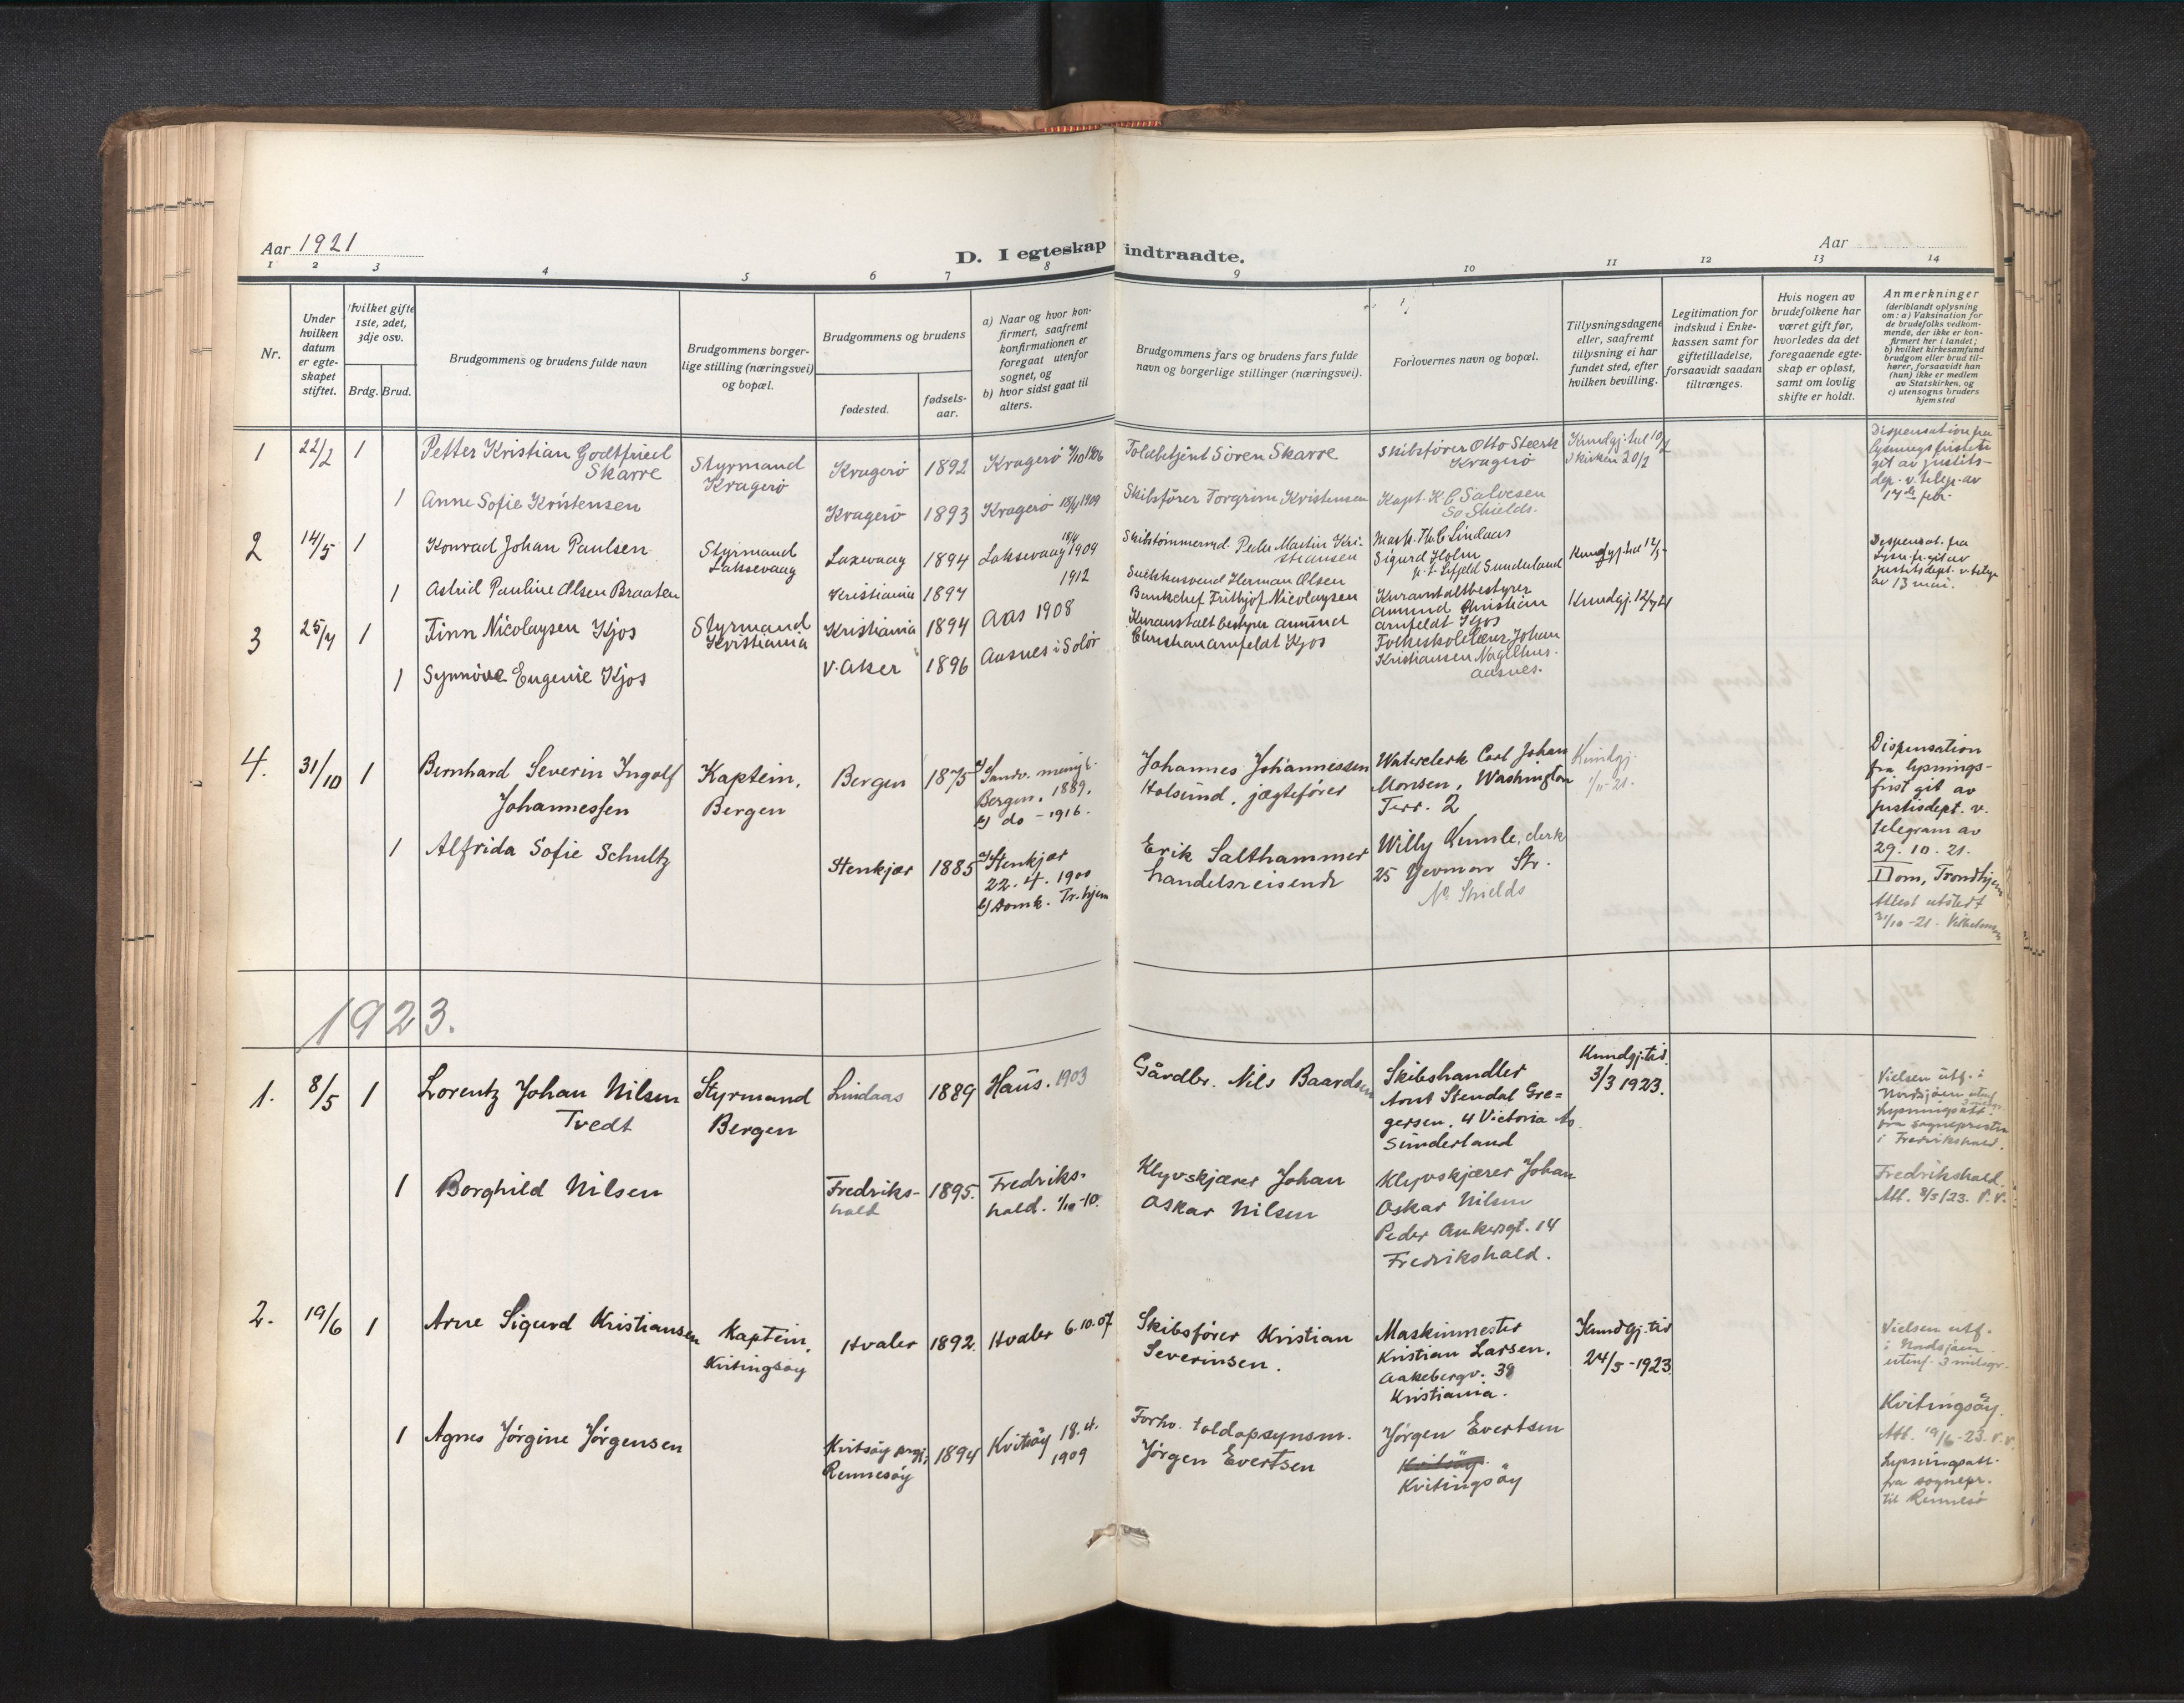 Aar 1921
D. I egteskap indtraadte.
Aar
1 2 3 4 5 6 7 8 9 10 11 12 13 14
Nr.
Under
hvilken
datum
er egte-
skapet
stiftet.
Hvilket gifte
1ste, 2det,
3dje osv.
Brdg. Brud.
Brudgommens og brudens fulde navn
Brudgommens borger-
lige stilling (næringsvei)
og bopæl.
Brudgommens og brudens
fødested.
fødsels-
aar.
a) Naar og hvor kon-
firmert, saafremt
konfirmationen er
foregaat utenfor
sognet, og
b) hvor sidst gaat til
alters.
Brudgommens fars og brudens fars fulde
navn og borgerlige stillinger (næringsvei).
Forlovernes navn og bopæl.
Tillysningsdagene
eller, saafremt
tillysning ei har
fundet sted, efter
hvilken bevilling.
Legitimation for
indskud i Enke-
kassen samt for
giftetilladelse,
forsaavidt saadan
tiltrænges.
Hvis nogen av
brudefolkene har
været gift før,
hvorledes da det
foregaaende egte-
skap er opløst,
samt om lovlig
skifte er holdt.
Anmerkninger
(deriblandt oplysning
om: a) Vaksination for
de brudefolks vedkom-
mende, der ikke er kon-
firmert her i landet;
b) hvilket kirkesamfund
brudgom eller brud til-
hører, forsaavidt han
(hun) ikke er medlem
av Statskirken, og
c) utensogns bruders
hjemsted
1 22/2 1
Petter Kristian Godtfried
Skarre
Styrmand
Kragerö
Kragerö 1892
Kragerö 1/10 1906
Toldbetjent Sören Skarre
Skibsfører Otto Steerk
Kragerö
Kundgj. tid 10/2
I kirken 20/2
Dispensation fra
lysningsfristen
git av justits-
dep. v. telegr. av
17de febr.
1 Anne Sofie Kristensen
Kragerö 1893
Kragerö 18/4 1909
Skibsfører Torgrim Kristensen
Kapt. K. C. Salvesen
So Shields.
2 14/5 1
Konrad Johan Paulsen
Styrmand
Laksevaag
Laxevaag 1894
Laksevaag 1909
Skibstømmermd. Peder Martin Kri-
stiansen
Mask. Th. C. Lindaas
Sigurd Holm
Sunderland
Kundgj. tid 12/5
Dispensat. fra
lysn. fr. git av
justitsdept. v. telegr.
av 13 mai.
1 Astrid Pauline Olsen Braaten
Kristiania 1897
1912
Herman Olsen
3 25/7 1
Finn Nicolaysen Kjos
Styrmand
Kristiania
Kristiania 1894
Aas 1908
Bankchef Frithjof Nicolaysen
Kuranstaltbestyrer
Amund Christian
Arnfeldt Kjos
Kundgj. 12/7 21
1 Synnöve Eugenie Kjos
V. Aker 1896
Aasnes i Solör
Kuranstaltbestyrer Amund
Christian Arnfeldt Kjos
Folkeskolelærer Johan
Kristiansen Nagelhus.
Aasnes.
4. 31/10 1
Bernhard Severin Ingolf
Johannessen
Kaptein,
Bergen
Bergen 1875
a) Sandv. menigh.
Bergen, 1889.
b) do - 1916.
Johannes Johannessen
Holsund, jægtefører
Waterclerk Carl Johan
Monsen, Washington
Terr. 2
Kundgj.
1/11-21.
Dispensation
fra lysnings-
frist git av
justisdept. v.
telegram av
29. 10. 21.
Dom, Trondhjem
Attest utstedt
31/10-21. Vilhelmsen
1 Alfrida Sofie Schultz
Stenkjær 1885
a) Stenkjær
22. 4. 1900
b) Domk. Tr.hjem
Erik Salthammer
handelsreisende
Willy Kumle, clerk
25 Yeoman Str.
No Shields
1923.
1. 8/5 1
Lorentz Johan Nilsen
Tvedt
Styrmand
Bergen
Lindaas 1889
Haus. 1903
Gårdbr. Nils Baardsen
Skibshandler
Arnt Stendal Gre=
gersen, 4 Victoria Av.
Sunderland
Kundgj. tid
3/3 1923.
Vielsen utf. i
Nordsjøen utenf.
3 milsgr.
Lysningsatt.
fra sogneprsten
i Fredrikshald.
1 Borghild Nilsen
Fredriks-
hald
1895.
Fredriks-
hald. 1/10-10.
Klyvskjærer Johan
Oskar Nilsen
Klyvskjærer Johan
Oskar Nilsen
Peder Ankersgt. 14
Fredrikshald.
Fredrikshald.
Att. 8/5/23. P.V.
2. 19/6 1
Arne Sigurd Kristiansen
Kaptein,
Kvitingsøy
Hvaler 1892.
Hvaler 6.10.07
Skibsfører Kristian
Severinsen.
Maskinmester
Kristian Larsen.
Aakebergv. 39
Kristiania.
Kundgj. tid
24/5-1923
Vielsen utf.
i Nordsjøen
utenf. 3 milsgr.
1 Agnes Jørgine Jørgensen
Kvitsøy prgj.
Rennesøy
1894
Kvitsøy 18.4.
1909
Forhv. toldopsynsm.
Jørgen Evertsen
Jørgen Evertsen
Kvitsøy.
Kvitingsöy
Kvitingsøy.
Att. 19/6-23. P.V.
Lysningsatt.
fra sognepr.
til Rennesø